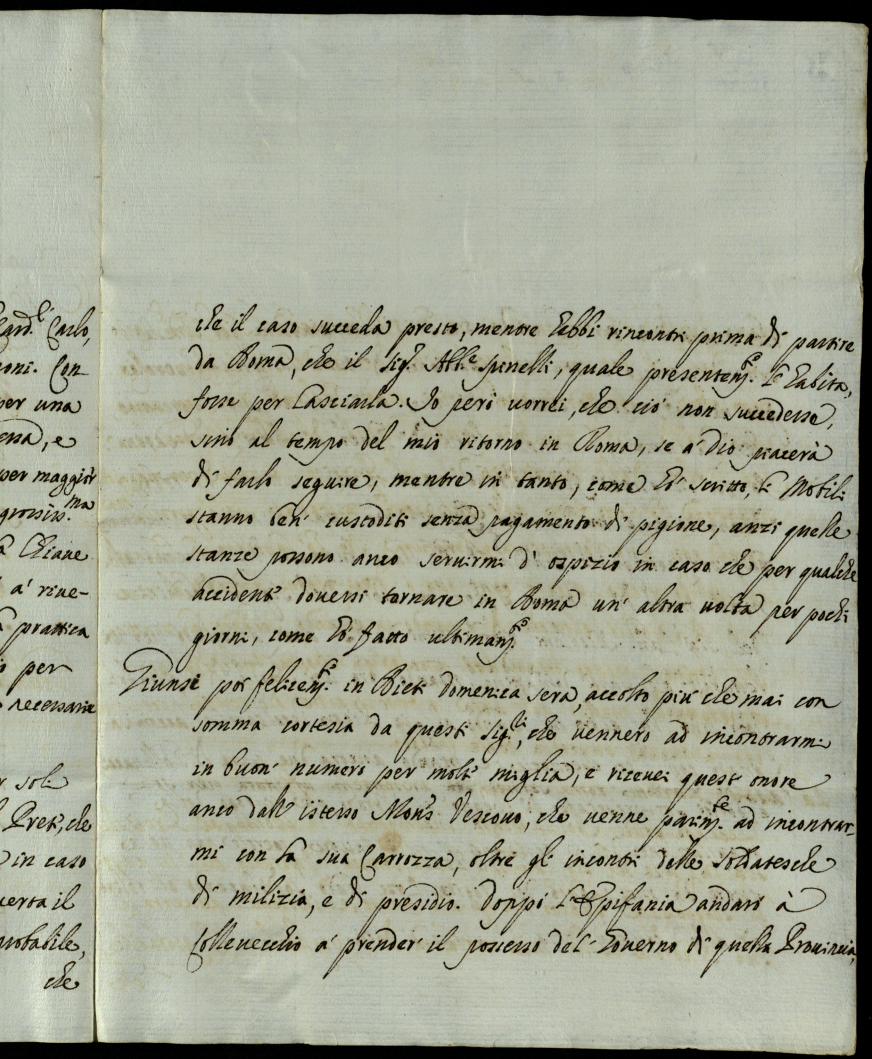 Card.le Carlo,
oni. Con-
per una
ensa, e
per maggior
grossiss.ma
Chiave
a' rive-
prattica
per
necessaria
soli
Preti, che
in caso
verta il
probabile,
che
che il caso succeda presto, mentre hebbi rincontri prima di partire
da Roma, che il Sig.r Abb.e Spinelli, quale presentem.e l'habita,
fosse per lasciarla. Io però vorrei, che ciò non succedesse,
sino al tempo del mio ritorno in Roma, se a' Dio piacerà
di farlo seguire, mentre in tanto, come hò scritto, li Mobili
stanno ben' custoditi senza pagamento di pigione, anzi quelle
stanze possono anco servirmi d' ospizio in caso che per qualche
accidente dovessi tornare in Roma un' altra volta per pochi
giorni, come hò fatto ultimam.e
Giunsi poi felicem.e in Rieti domenica sera, accolto più che mai con
somma cortesia da questi Sig.ri, che vennero ad incontrarmi
in buon' numero per molte miglia, e ricevei quest' onore
anco dall' istesso Mons.r Vescovo, che venne parim.te ad incontrar-
mi con la sua Carrozza, oltre gli incontri delle soldatesche
di milizia, e di presidio. Doppo l'Epifania andarò à
Collevecchio a' prender' il possesso del Governo di quella Provincia,